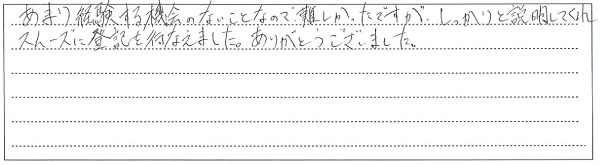 あまり経験する機会のないことなので難しかったですが、しっかりと説明してくれ
スムーズに登記を行なえました。ありがとうございました。